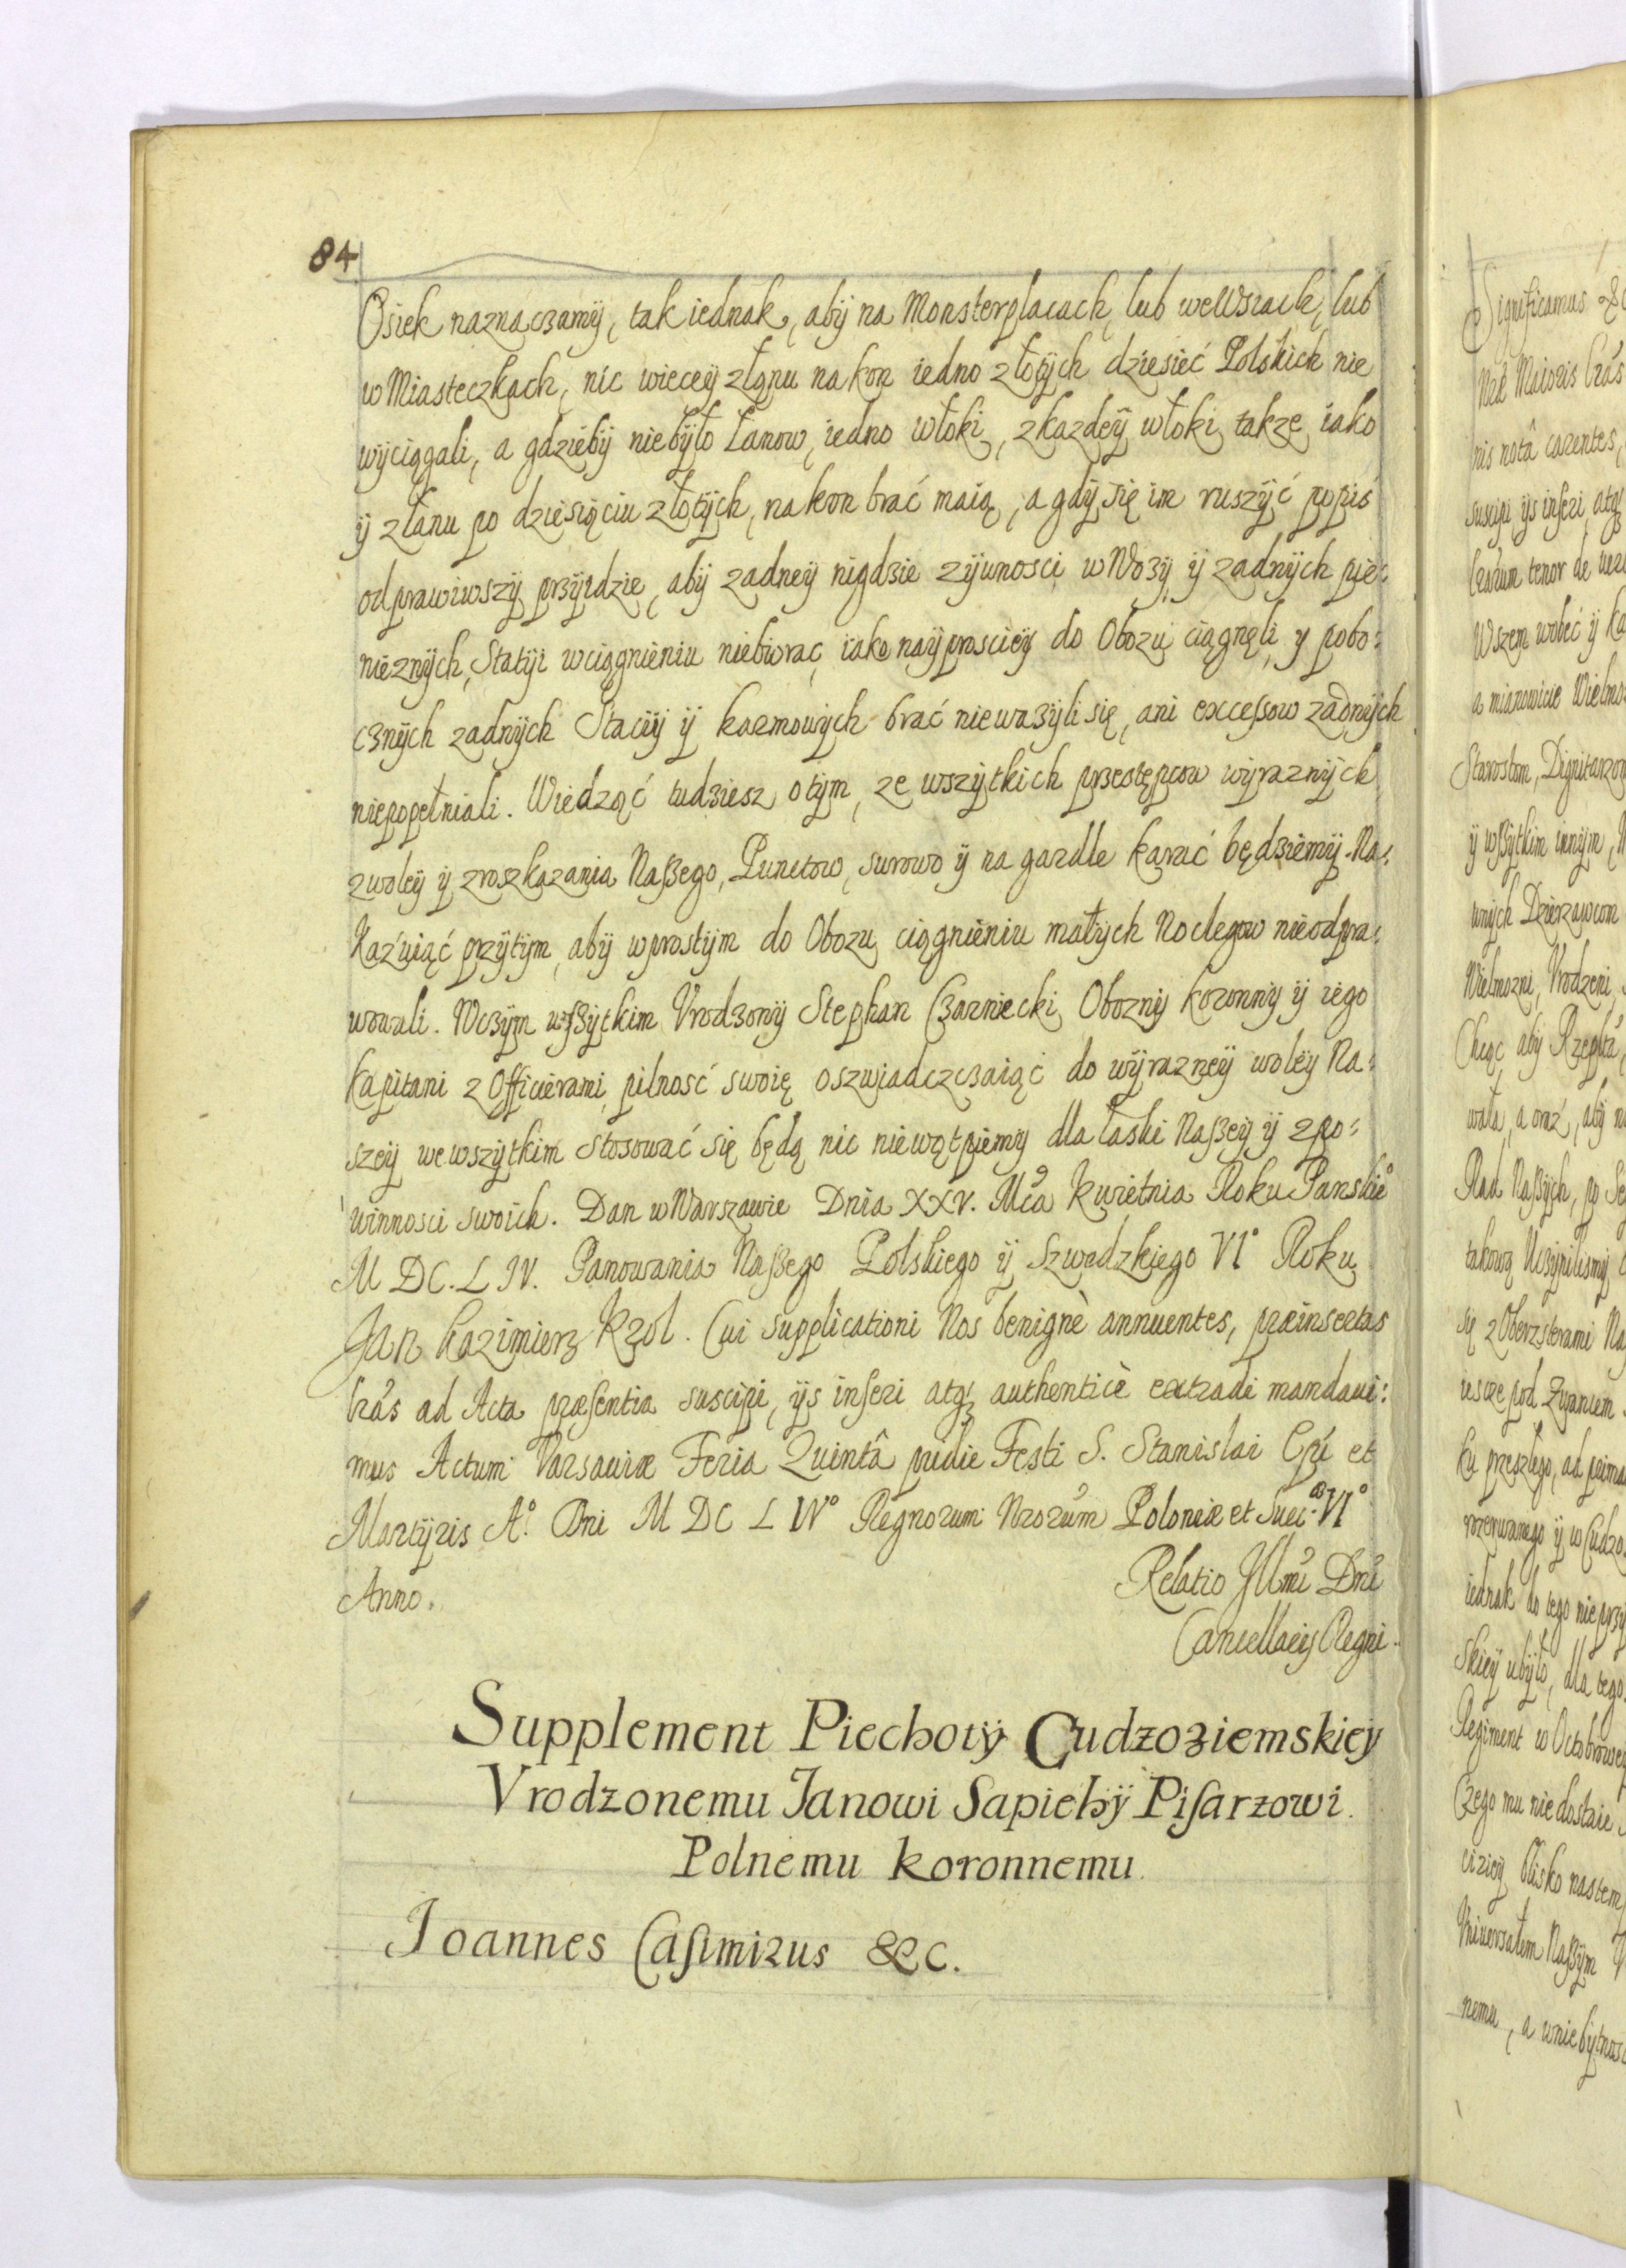 84
Osiek naznaczamÿ, tak iednak, abÿ na Monsterplacach, lub weWsiach, lub
w Miasteczkach, nic wiecey złanu na kon iedno złotÿch dziesieć Polskich nie
wÿciągali, a gdziebÿ niebÿło Łanow, iedno włoki, z kazdeÿ włoki takze iako
ÿ złanu po dziesiąciu złotÿch, na kon brać maią, a gdÿ się im ruszÿć popis
odprawiwszÿ przÿidzie, abÿ zadneÿ nigdzie zÿwnosci w Wozÿ ÿ zadnÿch pie:
nieznÿch, Statÿi wciągnieniu niebiorąc iako naÿprosciey do Obozu ciągnęli y pobo:
cznÿch zadnÿch Staciÿ ÿ karmowÿch brać niewazÿli się, ani excessow zadnÿch
niepopełniali. Wiedząć tudziesz otÿm, ze wszÿtkich przestępcow wÿraznÿch
zwoleÿ ÿ zroszkazania Naszego, Punctow, surowo ÿ na gardle karać będziemÿ. Na:
Kazuiąć przÿtÿm, abÿ wprostÿm do Obozu ciągnieniu małÿch Noclegow nieodpra:
wowali. Wczÿm wszÿtkim Vrodzonÿ Stephan Czarniecki Obozny koronny ÿ iego
Kapitani z Officierami pilność swoię oszwiadczczaiąć do wÿrazneÿ woleÿ Na:
szeÿ wewszÿtkim stosować się będą nic niewątpiemy dla łaski Naszeÿ ÿ zpo:
winnosci swoich. Dan w Warszawie Dnia XXV. Mca Kwietnia Roku Panskiᵒ
M DC. L IV. Panowania Naszego Polskiego ÿ Szwedzkiego VIᵒ Roku
Jan Kazimierz Krol. Cui supplicationi Nos benignè annuentes, præinsertas
lrás ad Acta præsentia suscipi, ÿs inseri atq; authenticè extradi mandaui:
mus Actum Varsauiæ Feria Quintâ pridie Festi S. Stanislai Epi et
Martÿris Aᵒ. Dni M DC L IVᵒ Regnorum Nrorum Poloniæ et Suec. VIᵒ
Anno.
Relatio Illmi Dni
Cancellarÿ Regni.
Supplement Piechotÿ Cudzoziemskieÿ
Vrodzonemu Janowi Sapiehÿ Pisarzowi
Polnemu koronnemu.
Joannes Casimirus &c.
Significamus &c
nis notâ carentes,
suscipi ÿs inseri, atq;
Wszem wobec ÿ Ka
a mianowicie Wielmo
Starostom, Dignitarzom
ÿ wszÿtkim innÿm,
wnÿch Dzierzawcom
Wielmozni, Vrodzeni,
Chcąc abÿ Rzeplta,
wała, a oraz, abÿ na
Rad Naszÿch, po Se
takową Uczÿnilismÿ
się z Oberzsterami Na
iescze pod Zwancem
ku przeszłego, ad
rozerwanego ÿ w Cudzo
iednak do tego nieprzÿ
skieÿ ubÿło, dla tego
Regiment w
Czego mu nie dostaie
blisko nastem
Vniuersałem Naszÿm
nemu, a wniebÿtnosc